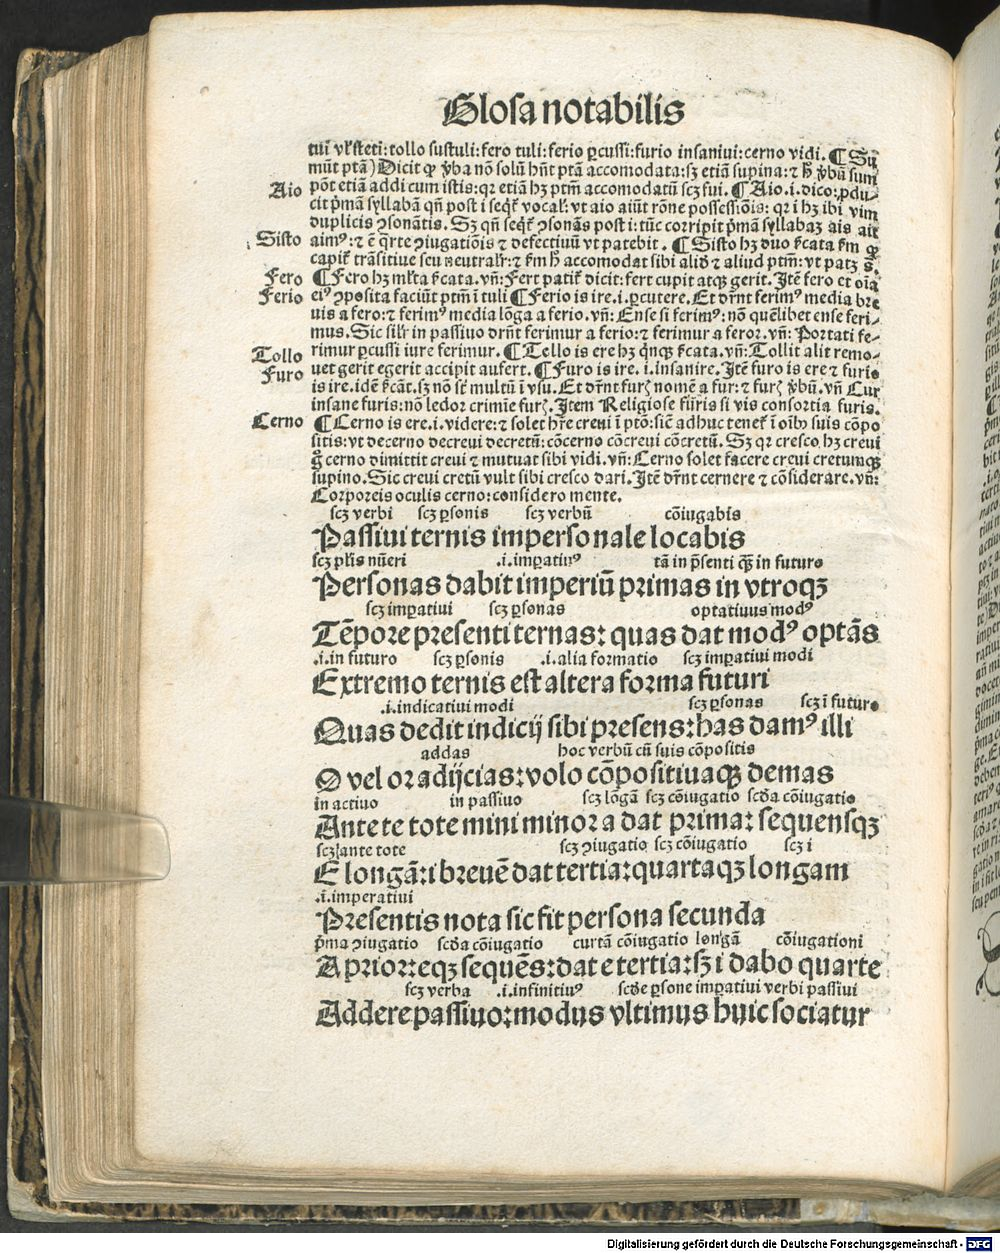 Glosa notabilis
tui vl̕ steti: tollo sustuli: fero tuli: ferio ꝑcussi: furio insaniui: cerno vidi. ¶ Su
mūt ptā) Dicit ꝙ v̕ba nō solū hn̄t ptā accomodata: sꝫ etiā supina: ⁊ h̕ v̕bū sum
pōt etiā addi cum istis: qr etiā hꝫ ptm̄ accomodatū scꝫ fui. ¶ Aio .i. dico: ꝓdu-
Aio
cit p̄mā syllabā qn̄ post i seqr̕ vocal̕: vt aio aiūt rōne possessiōis: qr i hꝫ ibi vim
duplicis ꝯsonātis. Sꝫ qn̄ seqr̕ ꝯsonās post i: tūc corripit p̄mā syllabaꝫ ais ait
Sisto
aimꝰ: ⁊ ē q̄rte ꝯiugatiōis ⁊ defectiuū vt patebit. ¶ Sisto hꝫ duo s̕cata s̕m ꝙ
capit̕ trāsitiue seu neutralr̕: ⁊ s̕m h̕ accomodat sibi aliđ ⁊ aliud ptm̄: vt patꝫ s̕.
Fero
¶ Fero hꝫ ml̕ta s̕cata. vn̄: Fert patit̕ dicit: fert cupit atqꝫ gerit. Itē fero et oīa
Ferio
eiꝰ ꝯposita faciūt ptm̄ i tuli ¶ Ferio is ire .i. ꝑcutere. Et dr̄nt ferimꝰ media bre
uis a fero: ⁊ ferimꝰ media lōga a ferio. vn̄: Ense si ferimꝰ: nō quēlibet ense feri-
mus. Sic silr̕ in passiuo dr̄nt ferimur a ferio: ⁊ ferimur a feror. vn̄: Portati fe-
Tollo
rimur ꝑcussi iure ferimur. ¶ Tollo is ere hꝫ qn̄qꝫ s̕cata. vn̄: Tollit alit remo-
Furo
uet gerit egerit accipit aufert. ¶ Furo is ire .i. insanire. Itē furo is ere ⁊ furio
is ire. idē s̕cāt. sꝫ nō st̕ multū i vsu. Et dr̄nt furꝭ nomē a fur: ⁊ furꝭ v̕bū. vn̄ Cur
insane furis: nō ledor crimīe furꝭ. Item Religiose furis si vis consortia furis.
Cerno
¶ Cerno is ere .i. videre: ⁊ solet hr̄e creui i ptō: sic adhuc tenet̕ i oībꝰ suis cōpo
sitis: vt decerno decreui decretū: cōcerno cōcreui cōcretū. Sꝫ qr cresco hꝫ creui
g̕ cerno dimittit creui ⁊ mutuat sibi vidi. vn̄: Cerno solet facere creui cretumqꝫ
supino. Sic creui cretū vult sibi cresco dari. Itē dr̄nt cernere ⁊ cōsiderare. vn̄:
Corporeis oculis cerno: considero mente.
scꝫ verbi scꝫ ꝑsonis scꝫ verbū cōiugabis
Passiui ternis impersonale locabis
scꝫ pl̕is nūeri .i. imꝑatiuꝰ tā in p̄senti qꝫ̄ in futuro
Personas dabit imperiū primas in vtroqꝫ
scꝫ imꝑatiui scꝫ ꝑsonas optatiuus modꝰ
Tēpore presenti ternas: quas dat modꝰ optās
.i. in futuro scꝫ ꝑsonis .i. alia formatio scꝫ imꝑatiui modi
Extremo ternis est altera forma futuri
.i. indicatiui modi scꝫ ꝑsonas scꝫ ī futuro
Quas dedit indicij sibi presens: has damꝰ illi
addas hoc verbū cū suis cōpositis
O vel or adijcias: volo cōpositiuaqꝫ demas
in actiuo in passiuo scꝫ lōgā scꝫ cōiugatio scđa cōiugatio
Ante te tote mini minor a dat prima: sequensqꝫ
scꝫ ante tote scꝫ ꝯiugatio scꝫ cōiugatio scꝫ i
E longā: i breuē dat tertia: quartaqꝫ longam
.i. imperatiui
Presentis nota sic fit persona secunda
p̄ma ꝯiugatio scđa cōiugatio curtā cōiugatio longā cōiugationi
A prior: eqꝫ sequēs: dat e tertia: sꝫ i dabo quarte
scꝫ verba .i. infinitiuꝰ scđe ꝑsone imꝑatiui verbi passiui
Addere passiuo: modus vltimus huic sociatur
Digitalisierung gefördert durch die Deutsche Forschungsgemeinschaft - DFG